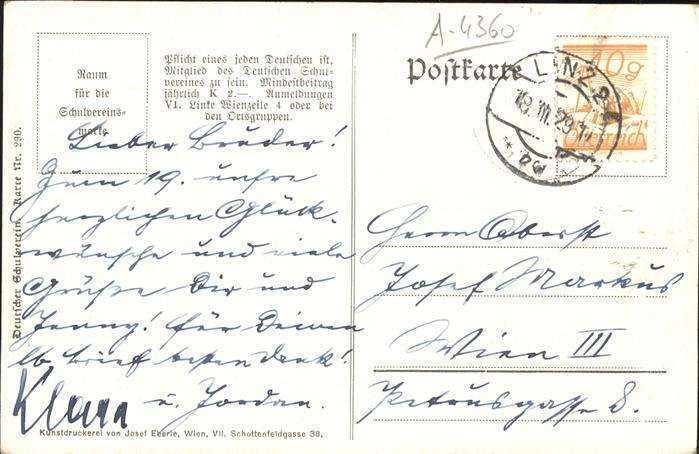 A-4360
Raum
für die
Schulvereins-
marke
Pflicht eines jeden Deutschen ist,
Mitglied des Deutschen Schul-
vereines zu sein. Mindestbeitrag
jährlich K 2.—. Anmeldungen
VI. Linke Wienzeile 4 oder bei
den Ortsgruppen.
Postkarte
LINZ 2
18.III.29
10g
Österreich
Deutscher Schulverein. Karte Nr. 290.
Lieber Bruder!
Zum 19. unsre
herzlichen Glück-
wünsche und viele
Grüße Dir und
Jenny! Für Deinen
lb Brief besten Dank!
Klara
u. Jordan.
Herrn Oberst
Josef Markus
Wien III
Petrusgasse 8.
Kunstdruckerei von Josef Eberle, Wien, VII. Schottenfeldgasse 38.